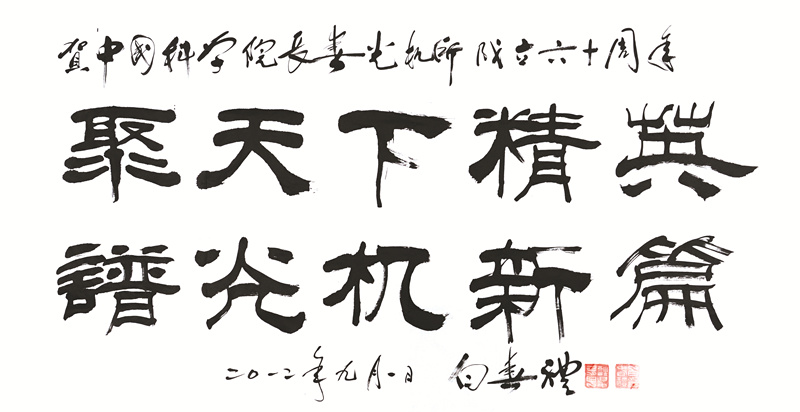 贺中国科学院长春光机所成立六十周年
聚天下精英
谱光机新篇
二〇一二年九月一日 白春礼